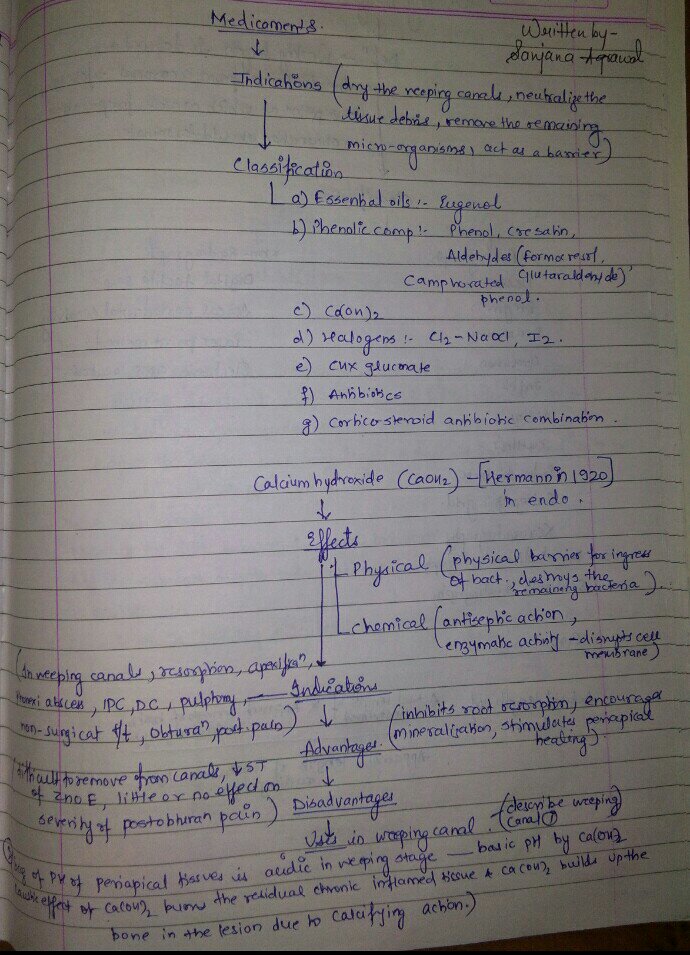 Medicaments.
Written by-
Sanjana Agrawal
Indications (dry the weeping canals, neutralize the
tissue debris, remove the remaining
micro-organisms, act as a barrier)
Classification
a) Essential oils :- Eugenol
b) Phenolic comp :- Phenol, cresatin,
Aldehydes (formocresol,
Glutaraldehyde),
Camphorated phenol.
c) Ca(OH)2
d) Halogens :- Cl2-NaOCl, I2.
e) CHX gluconate
f) Antibiotics
g) Corticosteroid antibiotic combination.
Calcium hydroxide (CaOH2) - [Hermann in 1920]
in endo.
Effects
Physical (physical barrier for ingress
of bact., destroys the
remaining bacteria).
Chemical (antiseptic action,
enzymatic activity - disrupts cell
membrane)
(In weeping canals, resorption, apexifxn,
abscess, IPC, DC, pulphomy, — Indications
non-surgical t/t, obturan, post. pain)
(inhibits root resorption, encourages
Advantages. mineralization, stimulates periapical
healing).
(difficult to remove from canals, ↓ ST
of ZnoE, little or no effect on
severity of postobturan pain) Disadvantages
Uses in weeping canal. (describe weeping
canal ①)
of PH of periapical tissues is acidic in weeping stage — basic pH by Ca(OH)2
effect of Ca(OH)2 burns the residual chronic inflamed tissue & Ca(OH)2 builds up the
bone in the lesion due to calcifying action.)